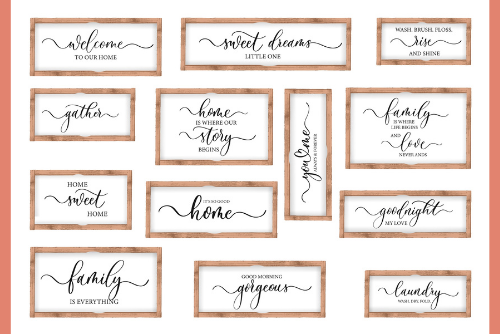 welcome
TO OUR HOME
sweet dreams
LITTLE ONE
WASH, BRUSH, FLOSS,
rise
AND SHINE
gather
home
IS WHERE OUR
story
BEGINS
you & me
ALWAYS & FOREVER
family
IS WHERE
LIFE BEGINS
AND
love
NEVER ENDS
HOME
sweet
HOME
IT'S SO GOOD
home
goodnight
MY LOVE
family
IS EVERYTHING
GOOD MORNING
gorgeous
laundry
WASH, DRY, FOLD,